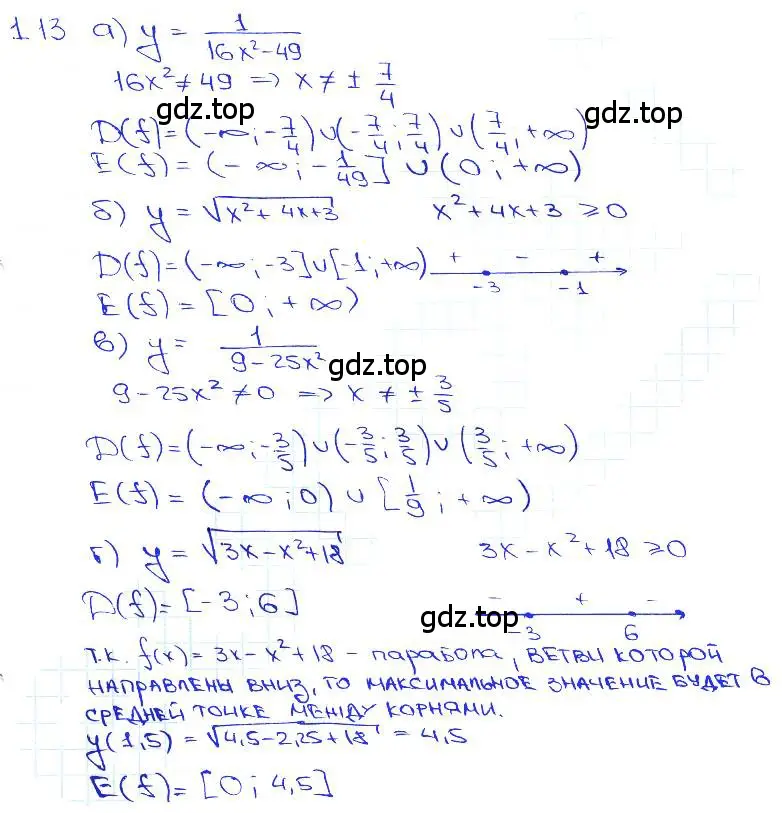 1.13 а) y = 1/(16x²-49)
16x² ≠ 49 => x ≠ ± 7/4
gdz.top
gdz.top
D(f)=(-∞;-7/4)∪(-7/4;7/4)∪(7/4,+∞)
E(f)=(-∞;-1/49]∪(0;+∞)
б) y = √(x²+4x+3) x²+4x+3 ≥0
D(f)=(-∞;-3]∪[-1;+∞) + - +
-3 -1
E(f)=[0;+∞)
в) y = 1/(9-25x²)
gdz.top
9-25x² ≠0 => x ≠ ± 3/5
D(f)=(-∞;-3/5)∪(-3/5;3/5)∪(3/5;+∞)
E(f)=(-∞;0)∪[1/9;+∞)
г) y = √(3x-x²+18) 3x-x²+18 ≥0
D(f)=[-3;6] - + -
gdz.top
-3 6
т.к. f(x)=3x-x²+18 - парабола, ветви которой
направлены вниз, то максимальное значение будет в
средней точке между корнями.
y(1,5)=√(4,5-2,25+18) = 4,5
E(f)=[0;4,5]